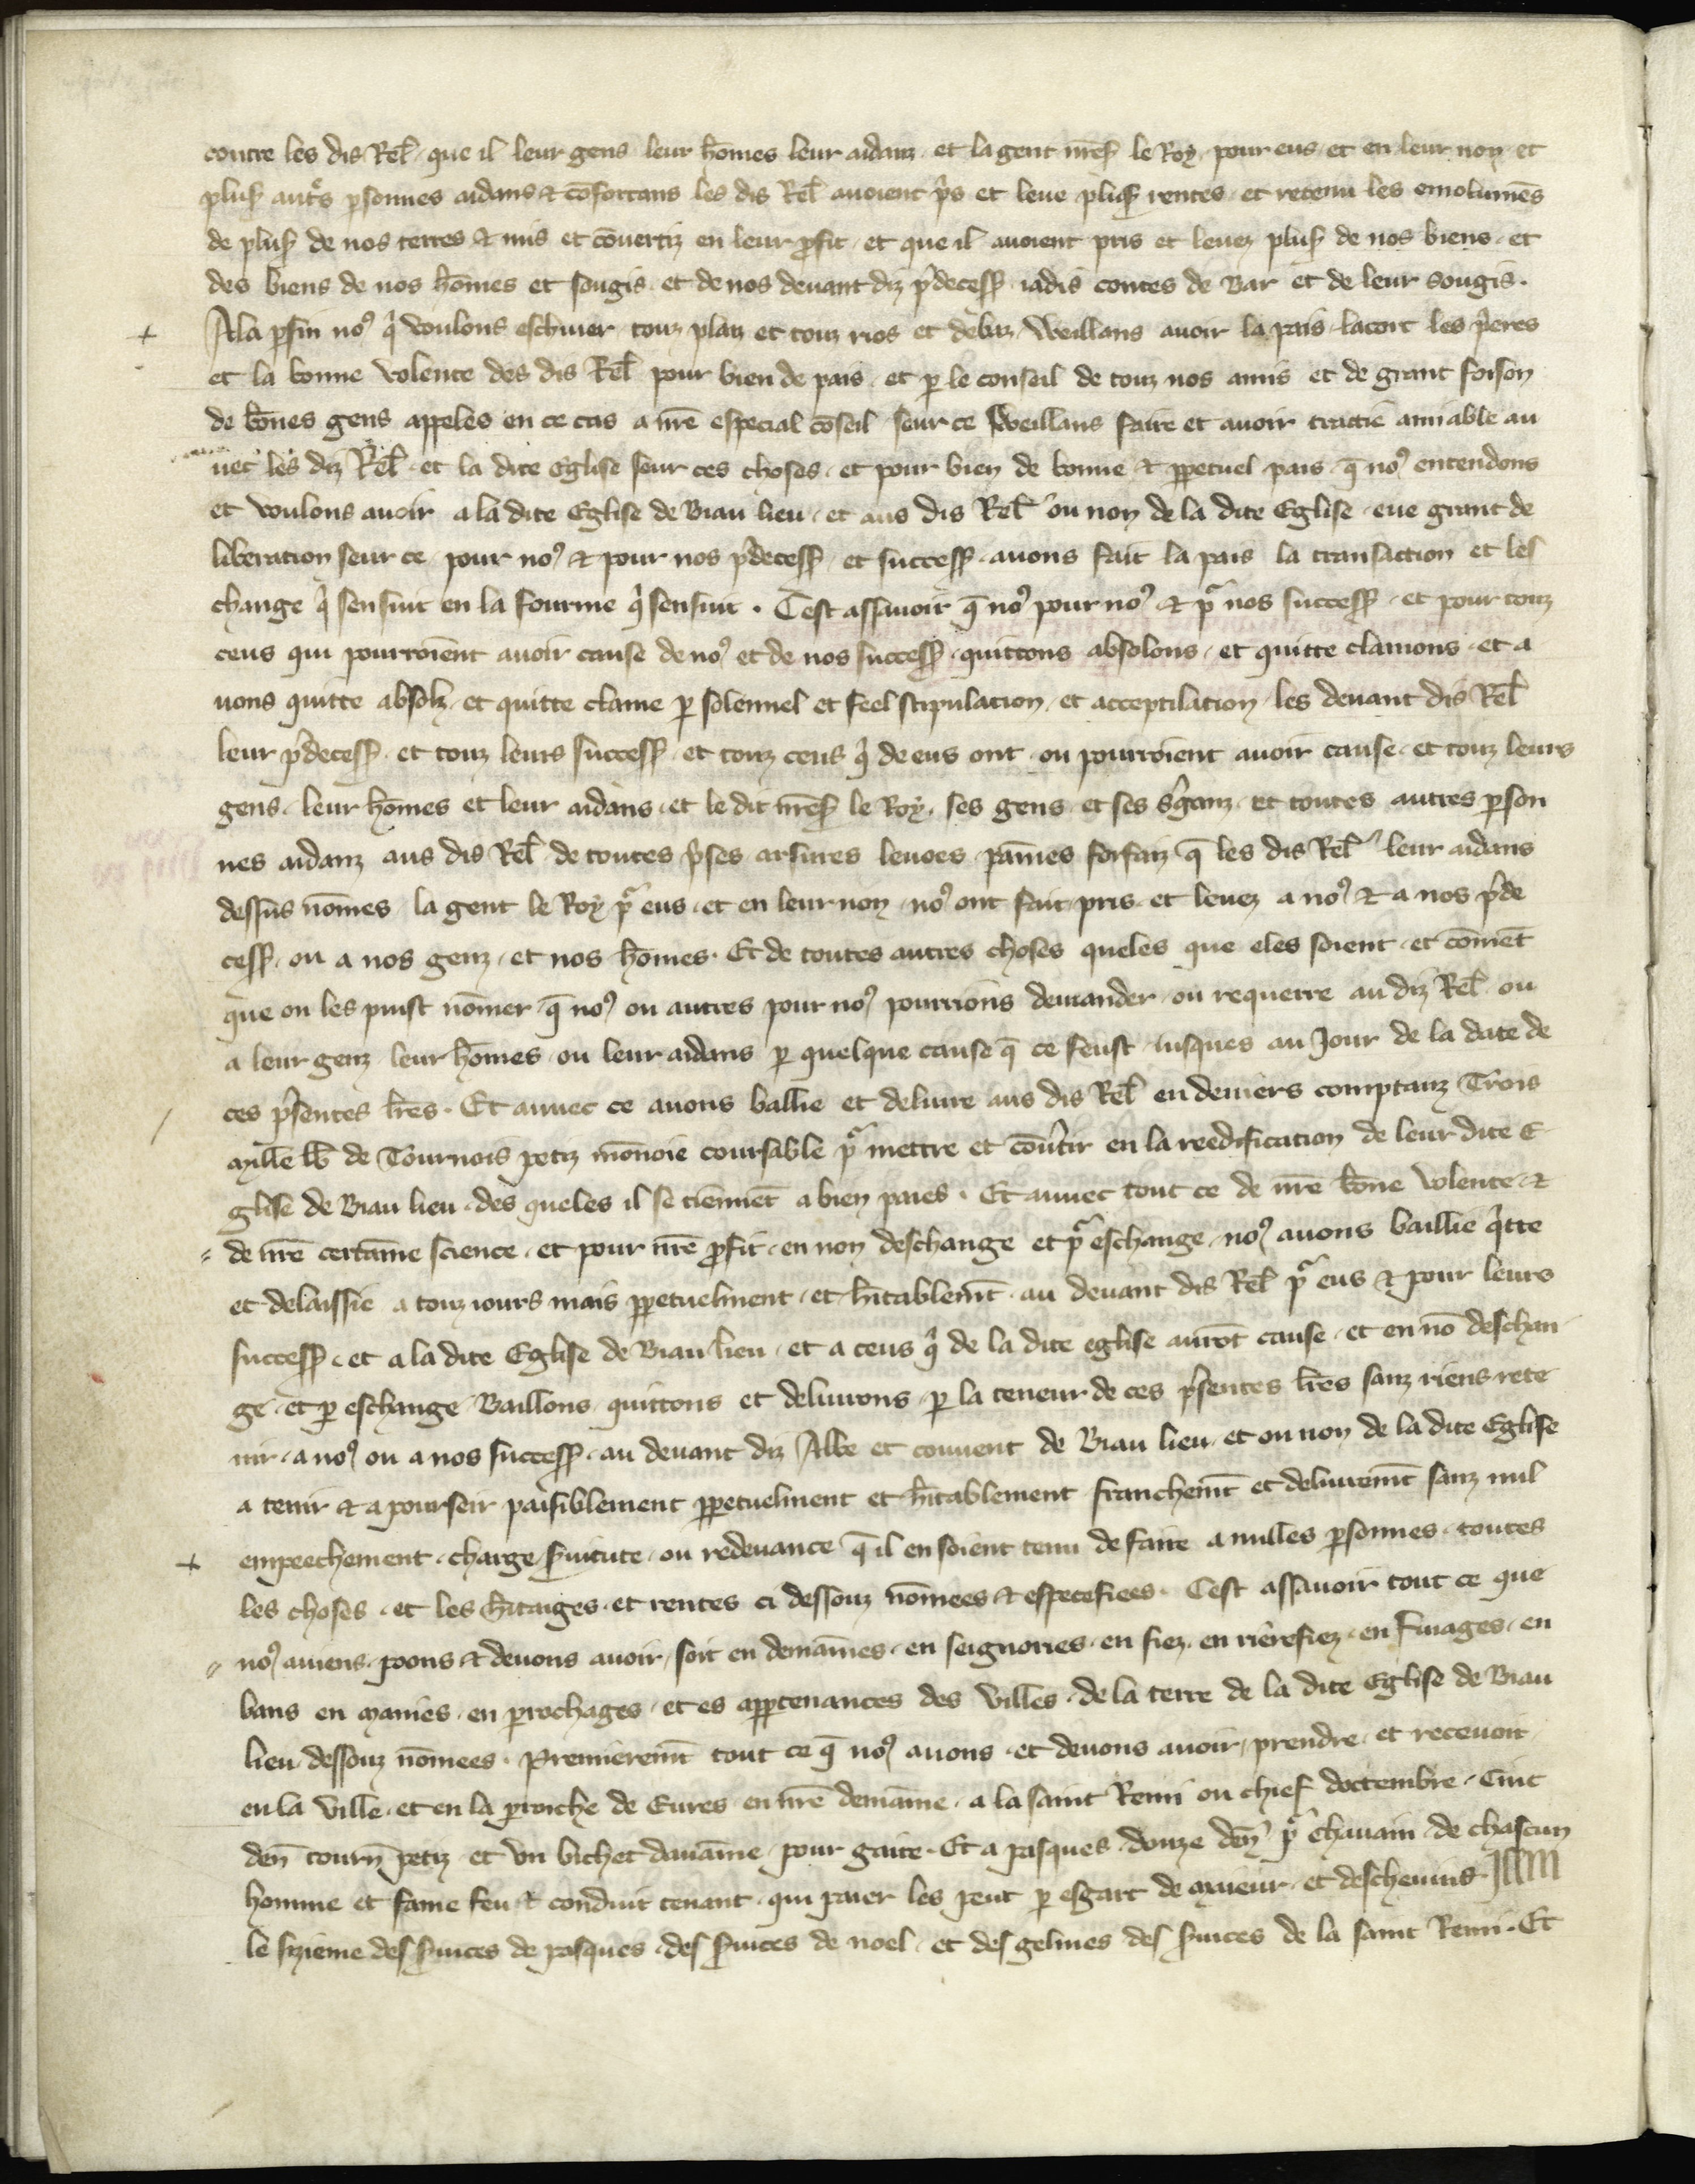 contre les dis Rel̄. que il leur gens leur hōmes leur aidanz. et la gent nr̄eſ le Roy. pour eus. et en leur non. et
pluſ aut̾s p̱sonnes aidans ⁊ cōfortans les dis Rel̄ auoient p̾s et leue pluſ rentes. et retenu les emolumēs
de pluſ de nos terres ⁊ mis et cōuertiz en leur ꝓfit. et que il auoient pris et leuez pluſ de nos biens. et
des biens de nos hōmes et sougis. et de nos deuant diz p̾decess̄. iadis contes de Bar et de leur sougis.
A la p̱fin noꝰ q̾ voulons eschiuer touz plaiz et touz rios et debaz. Weillans auoir la pais. lacort les p̾eres
et la bonne volente des dis Rel̄ pour bien de pais. et p̱ le conseil de touz nos amis et de grant foison
de bōnes gens appeles en ce cas a nr̄e especial cōseil seur ce Weillans faire et auoir tractie amiable au
uec les diz Rel̄. et la dite Eglise seur ces choses. et pour bien de bonne ⁊ p̱petuel pais. q̄ noꝰ entendons
et voulons auoir a la dite Eglise de Biau lieu. et aus dis Rel̄ ou non de la dite Eglise. eue grant de
liberation seur ce pour noꝰ ⁊ pour nos p̾decess̄. et success̄. auons fait la pais la transaction et les
change q̾ sensuit en la fourme q̾ sensuit. Cest assauoir q̄ noꝰ pour noꝰ ⁊ pͬ nos success̄. et pour touz
ceus qui pourroient auoir cause de noꝰ et de nos success̄. quittons absolons. et quitte clamons. et a
uons quitte absolz. et quitte clame p̱ solennel et feel stipulation. et acceptilation. les deuant dis Rel̄
leur p̾decess̄. et touz leurs success̄. et touz ceus q̾ de eus ont. ou pourroient auoir cause. et touz leurs
gens. leur hōmes et leur aidans. et le dit nr̄eſ le Roy. ses gens. et ses s̾ganz. et toutes autres p̱son
nes aidanz aus dis Rel̄ de toutes p̾ses arsures leuees pāines forfaiz q̄ les dis Rel̄ leur aidans
dessus nōmes la gent le Roy pͬ eus. et en leur non. noꝰ ont fait pris. et leuez a noꝰ ⁊ a nos p̾de
cess̄. ou a nos genz. et nos hōmes. Et de toutes autres choses queles que eles soient. et cōmēt
que on les puist nōmer. q̄ noꝰ ou autres pour noꝰ pourrions demander. ou requerre au diz Rel̄ ou
a leur genz leur hōmes. ou leur aidans p̱ quelque cause q̄ ce feust. iusques au Jour de la date de
ces p̾sentes lr̄es. Et auuec ce auons ballie et deliure aus dis Rel̄ en deniers comptanz Trois
mille lb̄ de Tournois petiz monoie coursable pͬ mettre et cōu̾tir en la reedification de leur dite E
glise de Biau lieu. des queles il se tiennēt a bien paies. Et auuec tout ce de nr̄e bōne volente. ⁊
de nr̄e certaīne science. et pour nr̄e ꝓfit. en non deschange et pͬ eschange. noꝰ auons baillie q̾tte
et delaissie a touz iours mais p̱petuelment. et h̾itablemt̄. au deuant dis Rel̄ pͬ eus ⁊ pour leurs
success̄. et a la dite Eglise de Biau lieu. et a ceus q̾ de la dite eglise aurōt cause. et en nō deschan
ge. et p̱ eschange Baillons quittons et deliurons. p̱ la teneur de ces p̾sentes lr̄es sanz riens rete
nir. a noꝰ ou a nos success̄. au deuant diz Abbe et couuent de Biau lieu. et ou non de la dite Eglise
a tenir ⁊ a pourseir paisiblement p̱petuelment et h̾itablement franchemt̄ et deliuremt̄ sanz nul
empeechement. charge s̾uitute. ou redeuance q̄ il en soient tenu de faire a nulles p̱sonnes. toutes
les choses. et les h̾itaiges. et rentes ci dessouz nōmees ⁊ especefiees. Cest assauoir tout ce que
noꝰ auiens. poons ⁊ deuons auoir. soit en demaīnes. en seignories. en fiez. en rierefiez. en s̾uages. en
bans en mānies. en p̱rochages. et es app̱tenances des villes. de la terre de la dite Eglise de Biau
lieu dessouz nōmees. Premieremt̄ tout ce q̄ noꝰ auons. et deuons auoir. prendre et receuoir
en la ville. et en la p̱roiche de Eures en nr̄e demaīne. a la saint Remi ou chief doctembre. Cinc
den̄ tourn̄ petiz. et vn bichet dauaīne pour gaite. Et a pasques. douze den̄ pͬ chauain. de chascun
homme et fame feu ⁊ conduit tenant. qui paier les peut p̱ esgart de maieur. et descheuins.
le sizieme des s̾uices de pasques. des s̾uices de noel. et des gelines des s̾uices de la saint Remi. Et